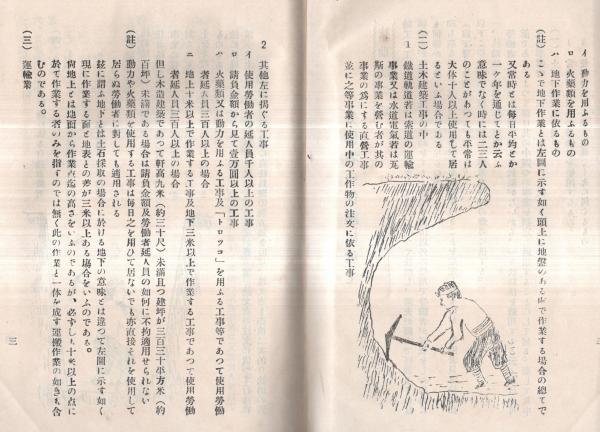 イ 動力を用ふるもの
ロ 火藥類を用ふるもの
ハ 地下作業に依るもの
(註) こゝで地下作業とは左圖に示す如く頭上に地盤のある所で作業する場合の總てで
ある
又常時とは毎日平均とか
一ケ年を通じてとか云ふ
意味でなく時には二三人
のことがあつても平常は
大体十人以上使用して居
るといふ場合である
(二) 土木建築工事の中
1 鐵道軌道若は索道の運輸
事業又は水道電氣若は瓦
斯の事業を營む者が其の
事業の爲にする直營工事
並に之等事業に使用中の工作物の注文に依る工事
2 其他左に揭ぐる工事
イ 使用勞働者の延人員千人以上の工事
ロ 請負金額から見て壹万圓以上の工事
ハ 火藥類又は動力を用ふる工事及「トロツコ」を用ふる工事等であつて使用勞働
者延人員三百人以上の場合
ニ 地上十米以上で作業する工事及地下三米以上で作業する工事であつて使用勞働
者延人員三百人以上の場合
但し木造建築であつて軒高九米(約三十尺)未滿且つ建坪が三百三十平方米(約
百坪)未滿である場合は請負金額及勞働者延人員の如何に不拘適用せられない
(註) 動力や火藥類を使用する工事は毎日之を用ひて居ないでも亦直接それを使用して
居らぬ勞働者に對しても適用される
玆に謂ふ地下とは土石採取の場合に於ける地下の意味とは違つて左圖に示す如く
現に作業する面と地表との差が三米以上ある場合をいふのである。
向地上とは地面から作業点迄の高さをいふのであるが、必ずしも十米以上の点に
於て作業する者のみを指すのでは無く此の作業と一体を成す運搬作業の如きも含
むのである。
(三) 運輸業
三